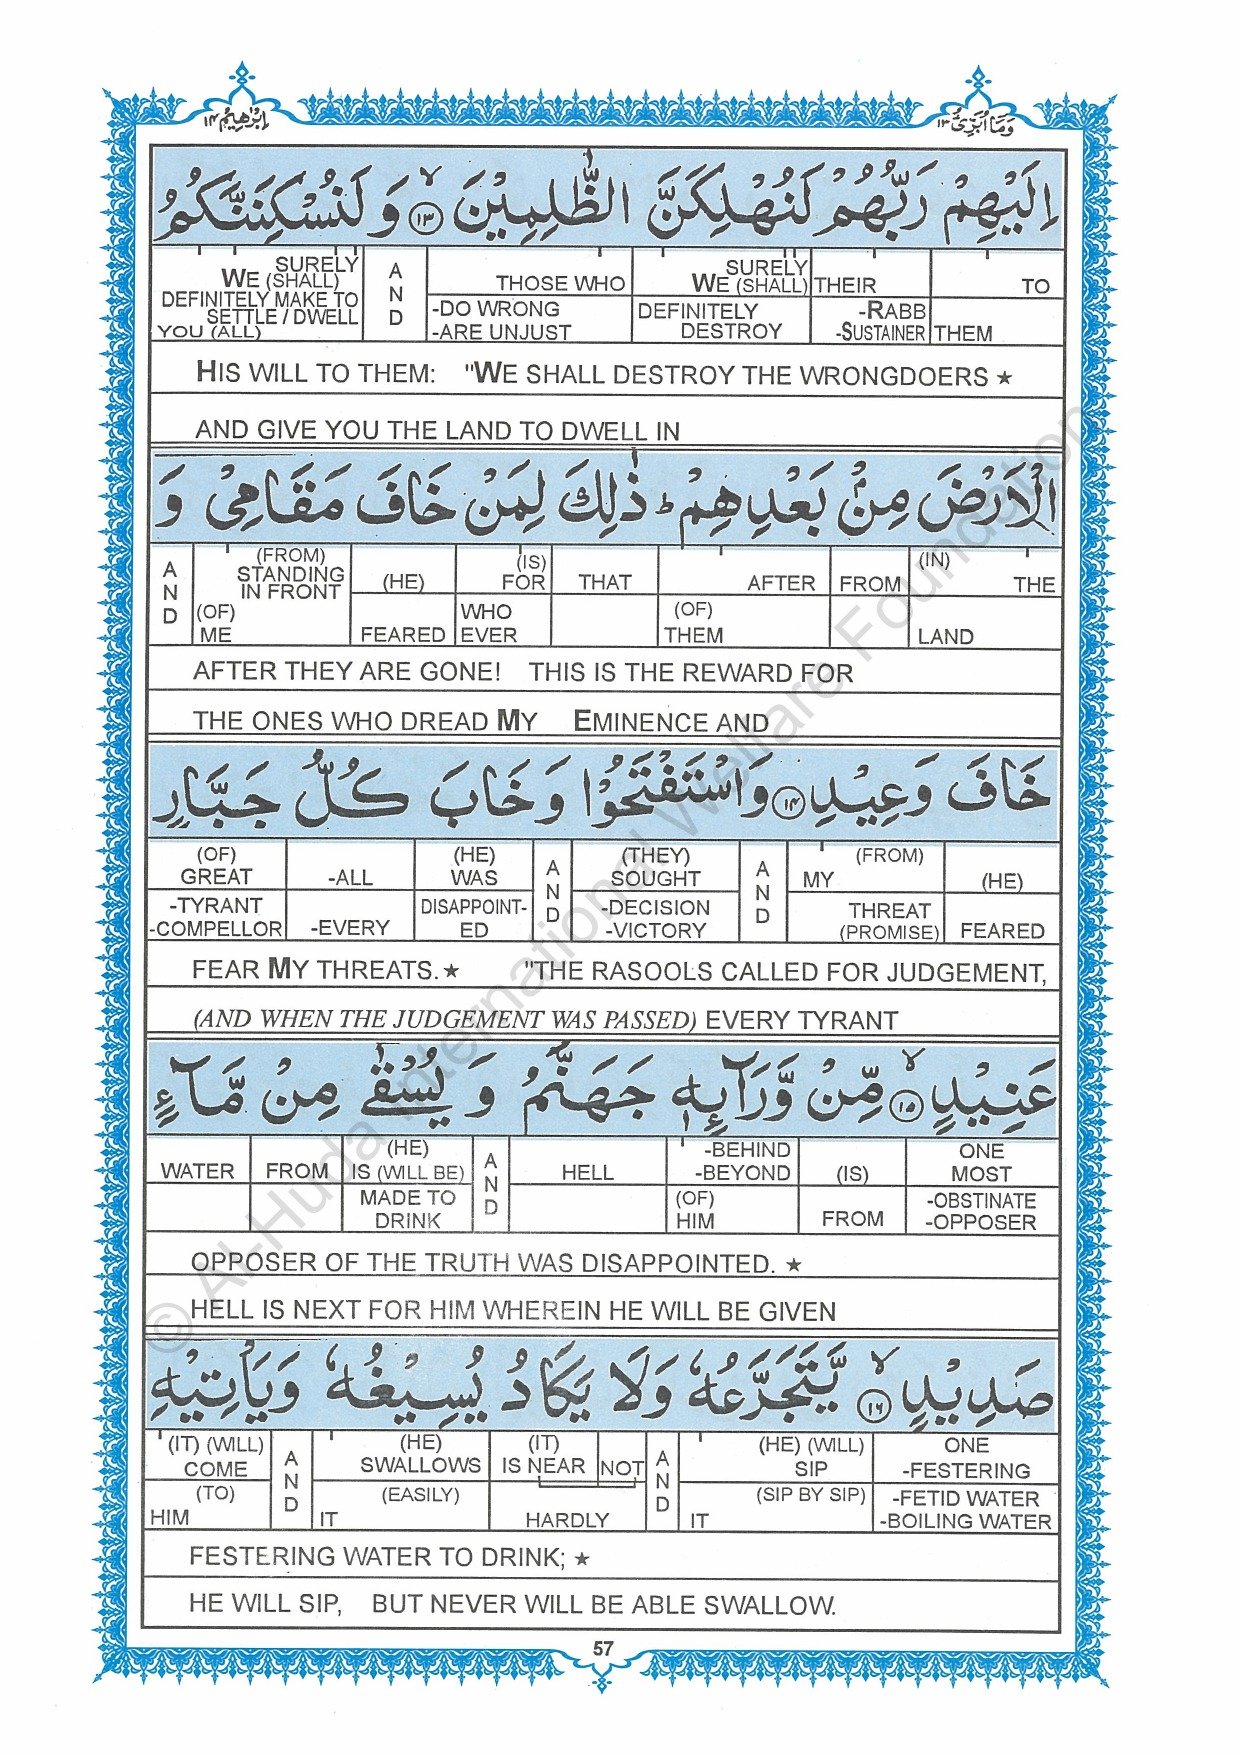 وَمَا أُبَرِّئُ ١٣
اِبْرٰهِيْم ١٤
اِلَيْهِمْ رَبُّهُمْ لَنُهْلِكَنَّ الظّٰلِمِيْنَ ۙ ١٣ وَ لَنُسْكِنَنَّكُمُ
SURELY WE (SHALL) DEFINITELY MAKE TO SETTLE / DWELL YOU (ALL) AND THOSE WHO -DO WRONG -ARE UNJUST SURELY WE (SHALL) DEFINITELY DESTROY THEIR -RABB -SUSTAINER TO THEM
HIS WILL TO THEM: "WE SHALL DESTROY THE WRONGDOERS ★
AND GIVE YOU THE LAND TO DWELL IN
الْاَرْضَ مِنْۢ بَعْدِهِمْ ؕ ذٰلِكَ لِمَنْ خَافَ مَقَامِيْ وَ
AND (FROM) STANDING IN FRONT (OF) ME (HE) FEARED (IS) FOR WHO EVER THAT AFTER (OF) THEM FROM (IN) THE LAND
AFTER THEY ARE GONE! THIS IS THE REWARD FOR
THE ONES WHO DREAD MY EMINENCE AND
خَافَ وَعِيْدِ ١٤ وَاسْتَفْتَحُوْا وَ خَابَ كُلُّ جَبَّارٍ
(OF) GREAT -TYRANT -COMPELLOR -ALL -EVERY (HE) WAS DISAPPOINT-ED AND (THEY) SOUGHT -DECISION -VICTORY AND (FROM) MY THREAT (PROMISE) (HE) FEARED
FEAR MY THREATS.★ "THE RASOOLS CALLED FOR JUDGEMENT,
(AND WHEN THE JUDGEMENT WAS PASSED) EVERY TYRANT
عَنِيْدٍ ۙ ١٥ مِّنْ وَّرَآئِهٖ جَهَنَّمُ وَ يُسْقٰى مِنْ مَّآءٍ
WATER FROM (HE) IS (WILL BE) MADE TO DRINK AND HELL -BEHIND -BEYOND (OF) HIM (IS) FROM ONE MOST -OBSTINATE -OPPOSER
OPPOSER OF THE TRUTH WAS DISAPPOINTED. ★
HELL IS NEXT FOR HIM WHEREIN HE WILL BE GIVEN
صَدِيْدٍ ۙ ١٦ يَّتَجَرَّعُهٗ وَلَا يَكَادُ يُسِيْغُهٗ وَيَاْتِيْهِ
(IT) (WILL) COME (TO) HIM AND (HE) SWALLOWS (EASILY) IT (IT) IS NEAR NOT HARDLY AND (HE) (WILL) SIP (SIP BY SIP) IT ONE -FESTERING -FETID WATER -BOILING WATER
FESTERING WATER TO DRINK; ★
HE WILL SIP, BUT NEVER WILL BE ABLE SWALLOW.
57
© Al-Huda International Welfare Foundation